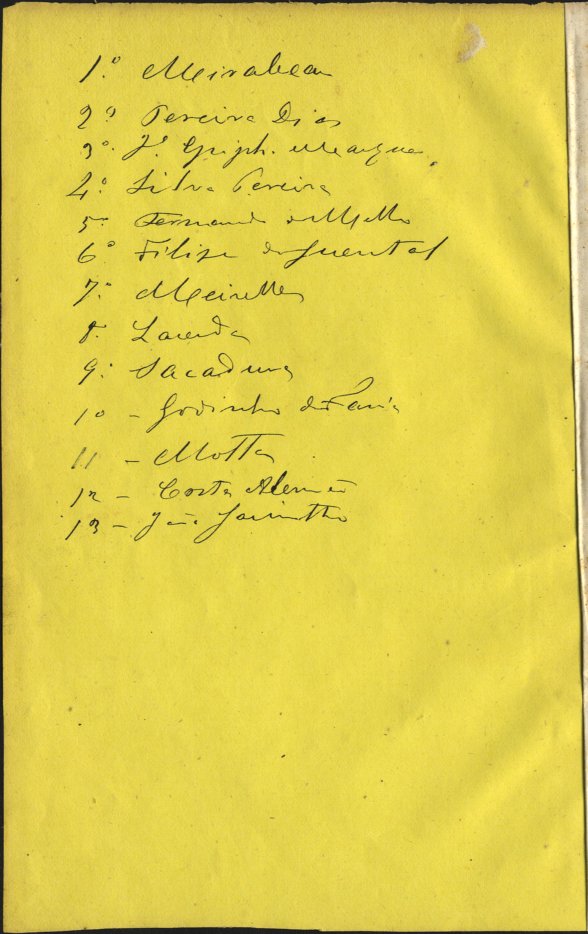 1º Mirabeau
2º Pereira Dias
3º J. Epiph. Marques
4º Silva Pereira
5º Fernando de Mello
6º Filipe de Quental
7º Meirelles
8º Lacerda
9º Sacadura
10 - Godinho de Faria
11 - Motta
12 - Costa Alemão
13 - João Jacintho